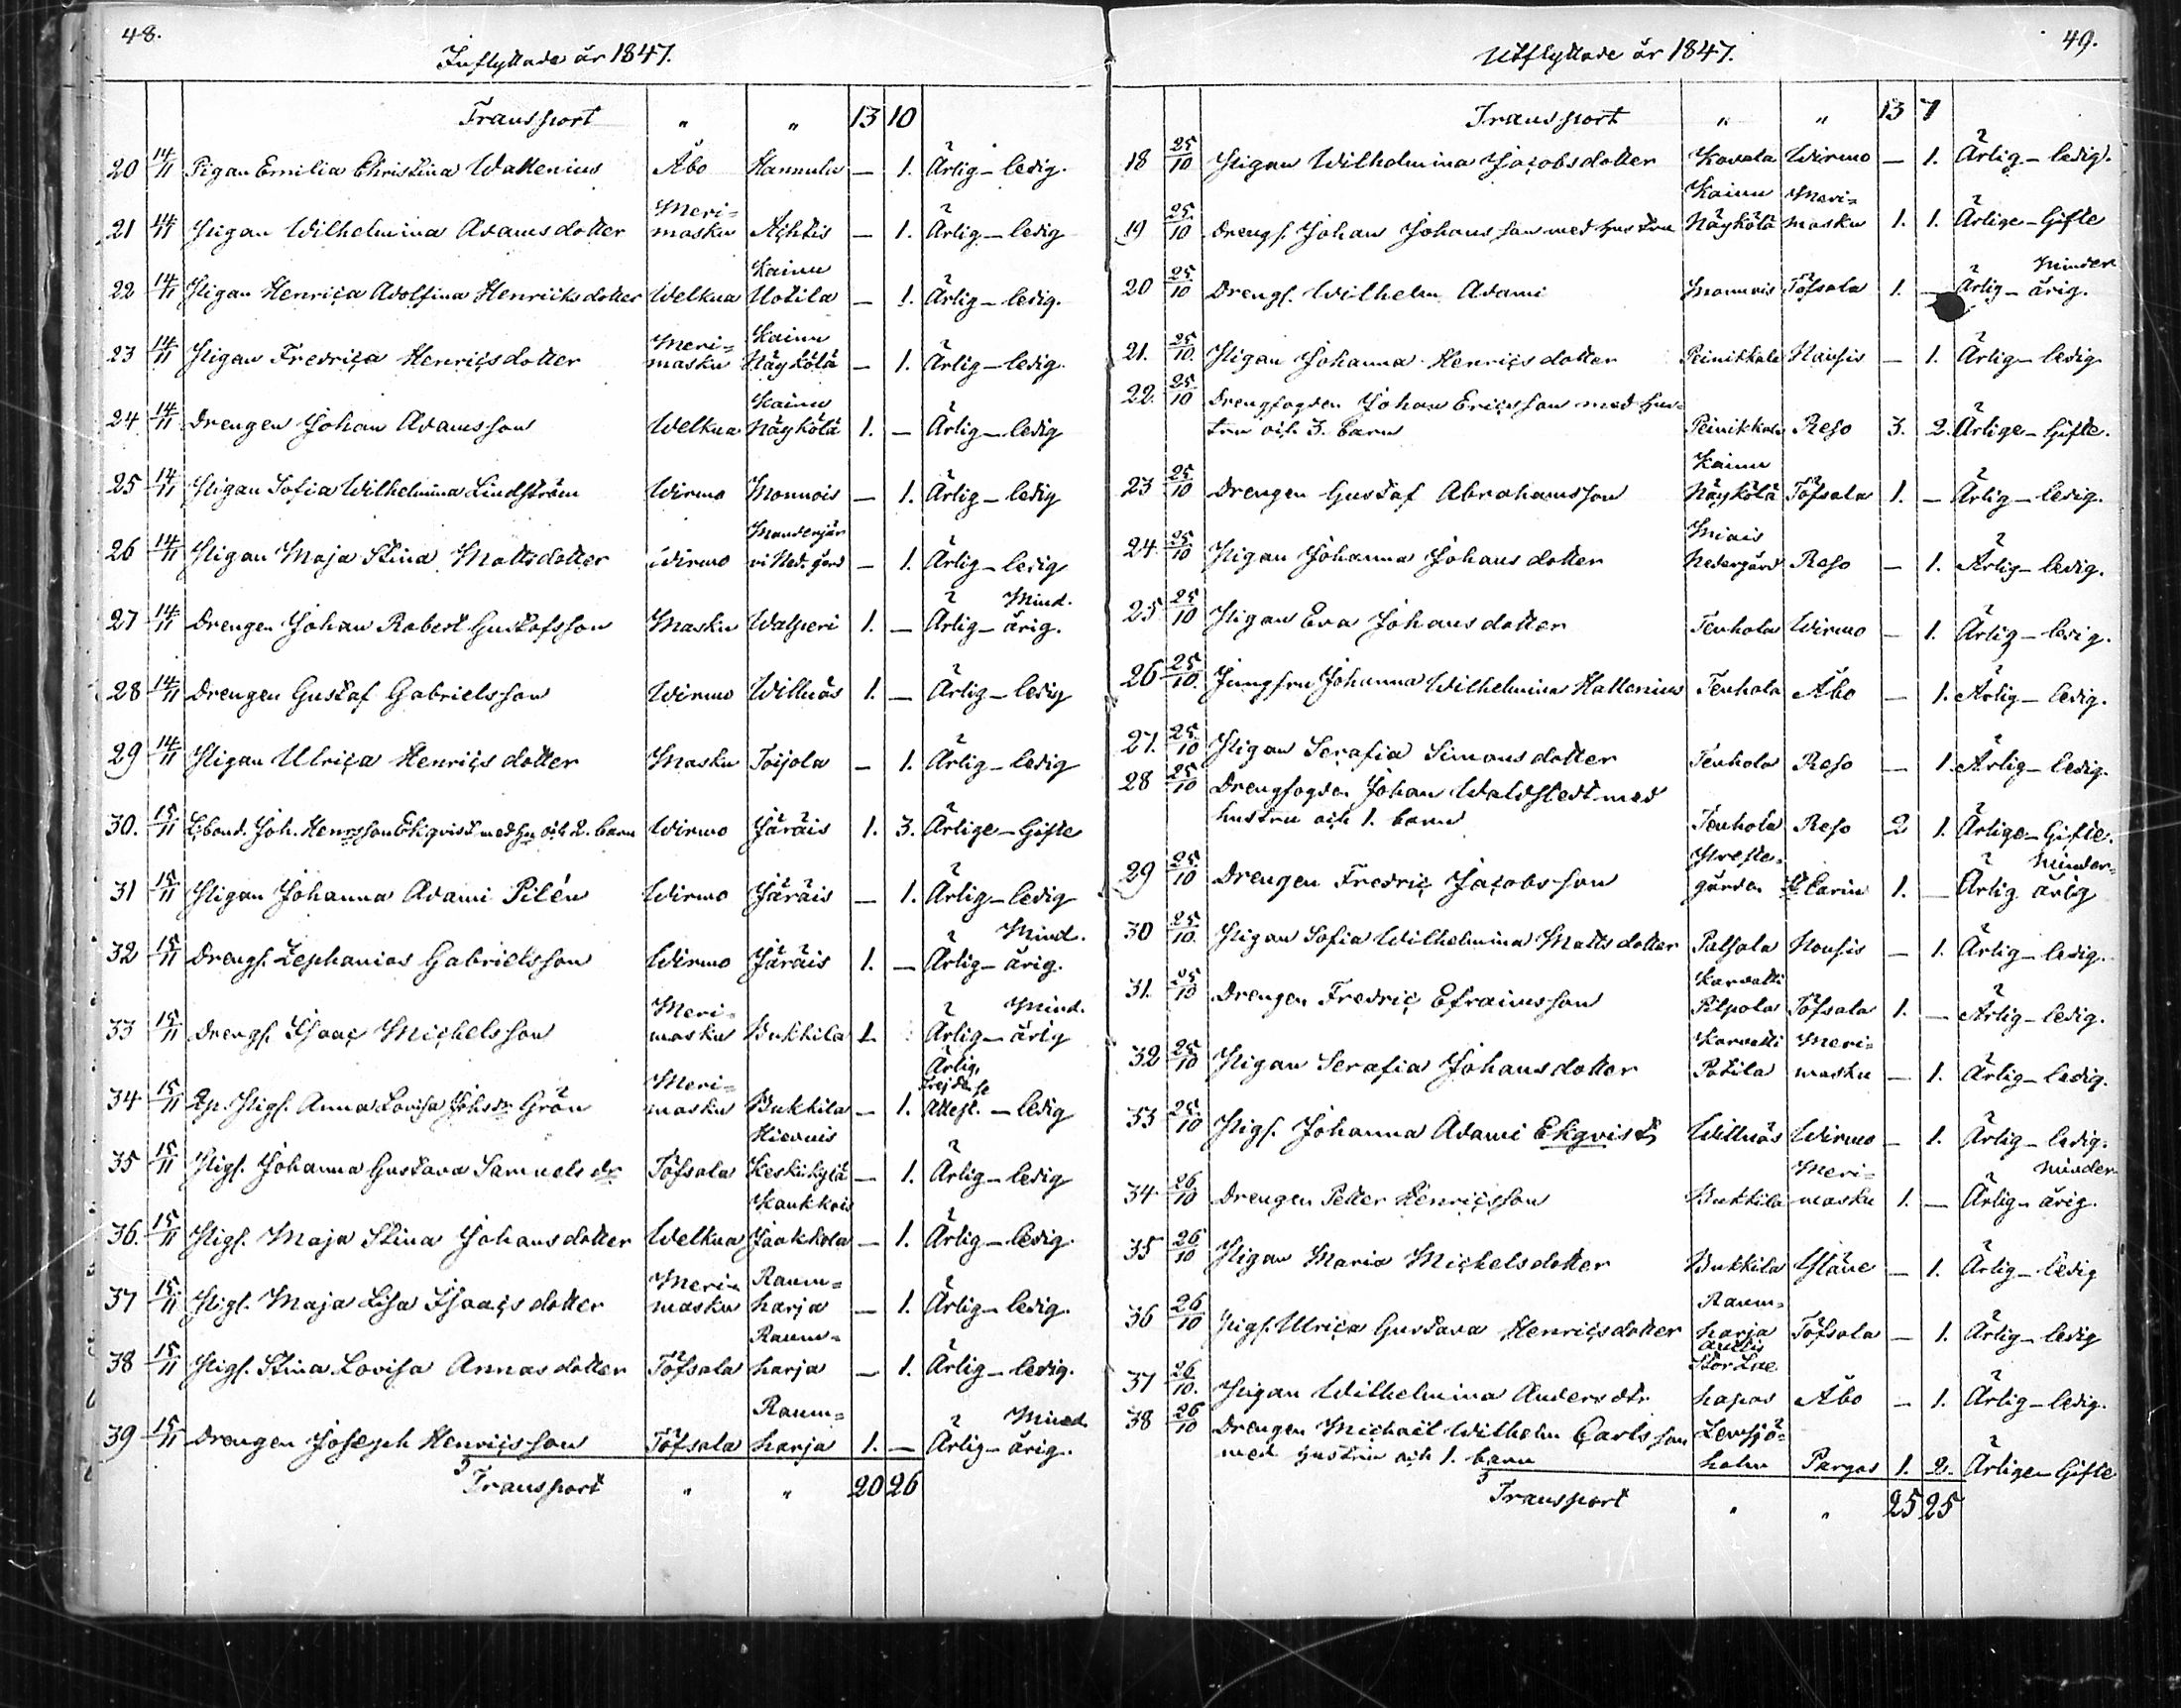 48.
Inflyttade år 1847.
Transport " " 13 10
20 14/11 Pigan Emilia Christina Wattenius Åbo Hannula — 1. Ärlig — ledig.
21 14/11 Pigan Wilhelmina Adamsdotter Meri=masku Ajhtis — 1. Ärlig — ledig
22 14/11 Pigan Henrica Adolfina Henriksdotter Welkua Kainu Uotila — 1. Ärlig — ledig.
23 14/11 Pigan Fredrica Henricsdotter Meri=masku Kainu Näykölä — 1. Ärlig — ledig.
24 14/11 Drengen Johan Adamsson Welkua Kainu Näykölä 1. — Ärlig — ledig
25 14/11 Pigan Sofia Wilhelmina Lindström Wirmo Monnois — 1. Ärlig — ledig
26 14/11 Pigan Maja Stina Mattsdotter Wirmo Mandenjär vi Ned. gård — 1. Ärlig — ledig
27 14/11 Drengen Johan Robert Gustafsson Masku Walperi 1. — Ärlig — Mind. årig.
28 14/11 Drengen Gustaf Gabrielsson Wirmo Willnäs 1. — Ärlig — ledig
29 14/11 Pigan Ulrica Henricsdotter Masku Toijola — 1. Ärlig — ledig
30. 15/11 L:bond. Joh. Henrsson Ekqvist med hu och 2. barn Wirmo Järäis 1. 3. Ärlige — Gifte
31 15/11 Pigan Johanna Adami Pilén Wirmo Järäis — 1. Ärlig — ledig
32 15/11 Drengs. Zephanias Gabrielsson Wirmo Järäis 1. — Ärlig — Mind. årig.
33 15/11 Drengs. Isaac Michelsson Meri=masku Bukkila 1. Ärlig — Mind. årig
34 15/11 Pigs. Anna Lovisa Johsdr Grön Meri=masku Bukkila — 1. Ärlig, Attest. — ledig
35 15/11 Pigs. Johanna Gustava Samuelsdr Töfsala Hiervais Keskikylä — 1. Ärlig — ledig
36. 15/11 Pigs. Maja Stina Johansdotter Welkua Kaukkois Jaakkola — 1. Ärlig — ledig.
37 15/11 Pigs. Maja Lisa Isaacsdotter Meri=masku Raum=harja — 1. Ärlig — ledig.
38 15/11 Pigs. Stina Lovisa Annasdotter Töfsala Raum=harja — 1. Ärlig — ledig.
39 15/11 Drengen Joseph Henricsson Töfsala Raum=harja 1. — Ärlig — Mind. årig.
Transport " " 20 26
49.
Utflyttade år 1847.
Transport " " 13 7
18 25/10 Pigan Wilhelmina Jacobsdotter Kavala Wirmo — 1. Ärlig — ledig.
19 25/10 Drengs. Johan Johansson med hustru Kainu Näykölä Meri=masku 1. 1. Ärlige — Gifte
20 25/10 Drengs. Wilhelm Adami Monnois Töfsala 1. — Ärlig — Minder årig.
21. 25/10. Pigan Johanna Henricsdotter Peinikkala Nousis — 1. Ärlig — ledig
22. 25/10 Drengfogden Johan Ericsson med hus=
tru och 3. barn Peinikkala Reso 3. 2. Ärlige — Gifte.
23 25/10 Drengen Gustaf Abrahamsson Kainu Näykölä Töfsala 1. — Ärlig — ledig.
24 25/10 Pigan Johanna Johansdotter Miais Nedergård Reso — 1. Ärlig — ledig.
25 25/10 Pigan Eva Johansdotter Tenhola Wirmo — 1. Ärlig — ledig.
26 25/10. Jungfru Johanna Wilhelmina Hallenius Tenhola Åbo — 1. Ärlig — ledig.
27. 25/10 Pigan Serafia Simonsdotter Tenhola Reso — 1. Ärlig — ledig.
28 25/10 Drengfogden Johan Waldstedt med
hustru och 1. barn Tenhola Reso 2 1. Ärlige — Gifte.
29 25/10 Drengen Fredric Jacobsson Preste=gården St Carin 1. — Ärlig Minder=årig
30 25/10. Pigan Sofia Wilhelmina Mattsdotter Palsala Nousis — 1. Ärlig — ledig.
31. 25/10 Drengen Fredric Efraimsson Karvatti Pilpola Töfsala 1. — Ärlig — ledig.
32 25/10 Pigan Serafia Johansdotter Karvatti Potila Meri=masku — 1. Ärlig — ledig.
33 25/10 Pigs. Johanna Adami Ekqvist Willnäs Wirmo — 1. Ärlig — ledig.
34 26/10 Drengen Petter Henricsson Bukkila Meri=masku 1. — Ärlig — Minder årig.
35 26/10 Pigan Maria Michelsdotter Bukkila Yläne — 1. Ärlig — ledig
36 26/10 Pigs. Ulrica Gustava Henricsdotter Raum=harja Töfsala — 1. Ärlig — ledig
37 26/10. Pigan Wilhelmina Andersdtr hapas Åbo — 1. Ärlig — ledig.
38 26/10 Drengen Michaël Wilhelm Carlsson
med hustru och 1. barn Lemsjö=holm Pargas 1. 2. Ärlige — Gifte
Transport " " 25 25